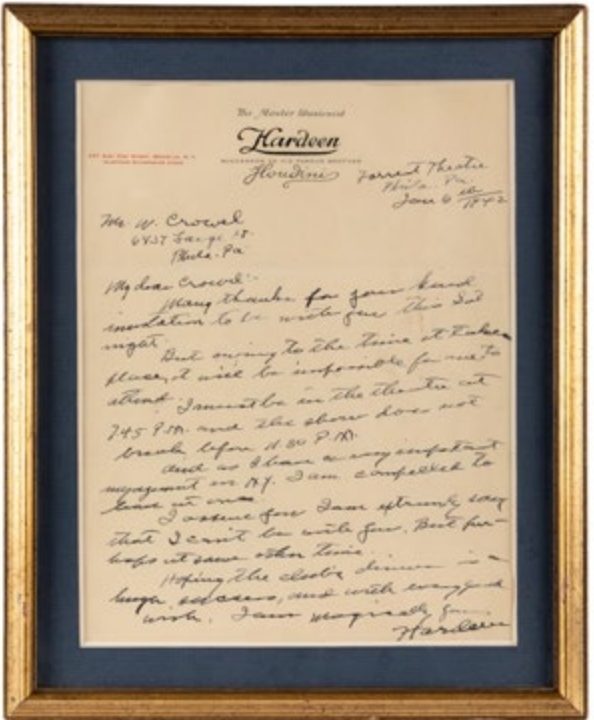 The Master Mysteried
Hardeen
SUCCESSOR TO HIS FAMOUS BROTHER
Houdini
Forrest Theatre
Phila. Pa.
Jan 6th 1942
Mr. W. Crowel
Phila. Pa
My dear Crowel:-
Many thanks for your kind
invitation to be with you this Sat
night.
But owing to the time it takes
place, it will be impossible for me to
attend. I must be in the theatre at
7.45 P.M. and the show does not
break before 11.00 P.M.
And as I have a very important
engagement in N.Y. I am compelled to
leave at once
I assure you I am extremly sorry
that I can't be with you. But per-
haps at some other time.
Hoping the clubs dinner is a
huge success, and with every good
wish. I am magically yours
Hardeen